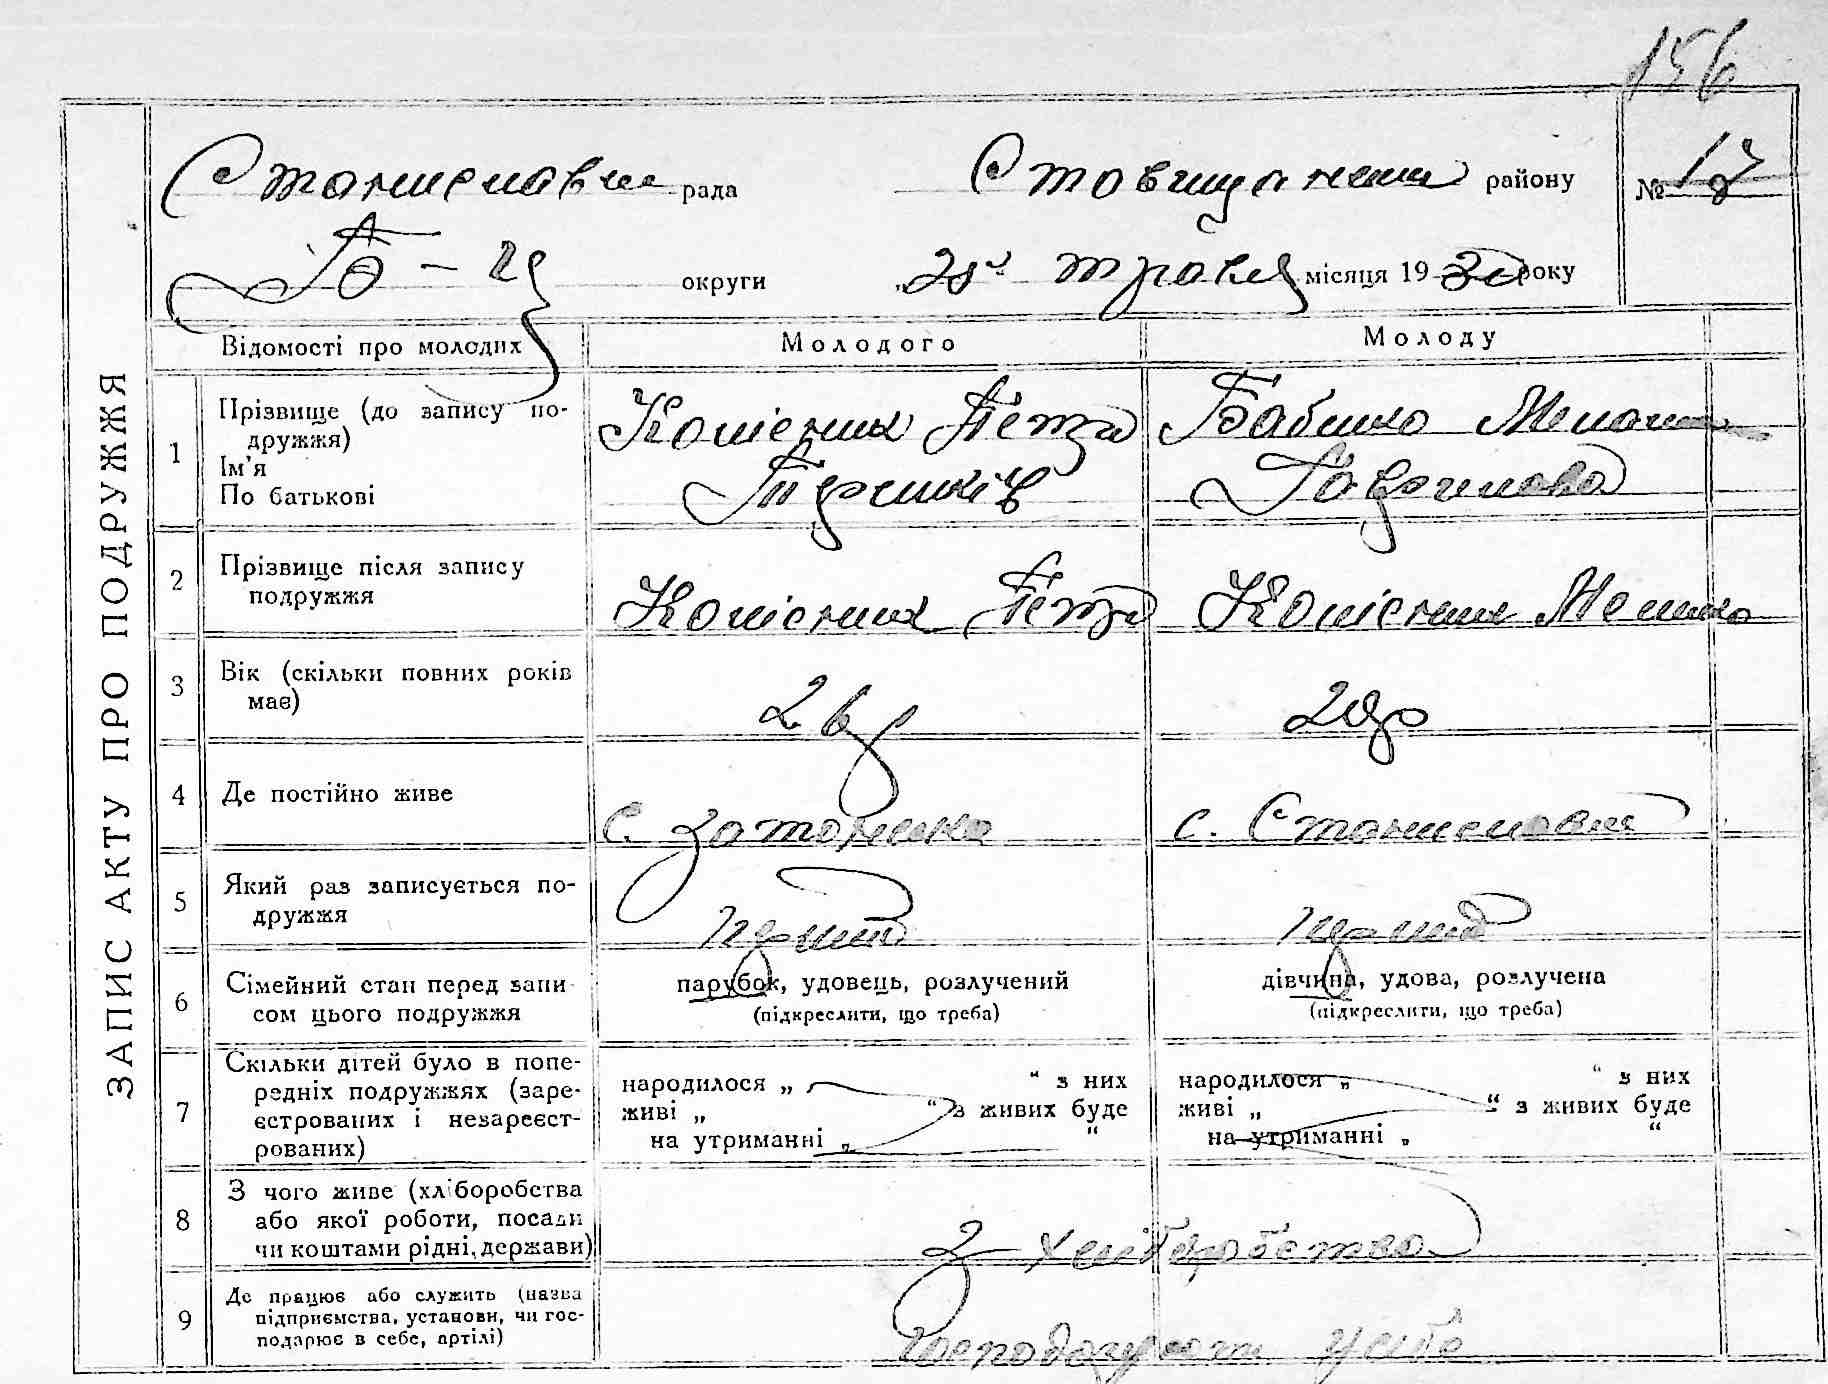 156
Станиславч рада Ставищанськ району № 17
округи „ 28 травня місяця 1930 року
ЗАПИС АКТУ ПРО ПОДРУЖЖЯ
Відомості про молодих Молодого Молоду
1 Прізвище (до запису по-
дружжя)
Ім'я
По батькові
Колісник Петро
Бабенко Мелан
Гаврилова
2 Прізвище після запису
подружжя
Колісник Петро Колісник Мелан
3 Вік (скільки повних років
має)
26 20р
4 Де постійно живе
с. с. Станиславч
5 Який раз записується по-
дружжя
перший перший
6 Сімейний стан перед запи-
сом цього подружжя
парубок, удовець, розлучений
(підкреслити, що треба)
дівчина, удова, розлучена
(підкреслити, що треба)
7 Скільки дітей було в попе-
редніх подружжях (заре-
єстрованих і незареєст-
рованих)
народилося „ “ з них
живі „ “ з живих буде
на утриманні „ “
народилося „ “ з них
живі „ “ з живих буде
на утриманні „ “
8 З чого живе (хліборобства
або якої роботи, посади
чи коштами рідні, держави)
З хліборобства
9 Де працює або служить (назва
підприємства, установи, чи гос-
подарює в себе, артілі)
Господарюють у себе